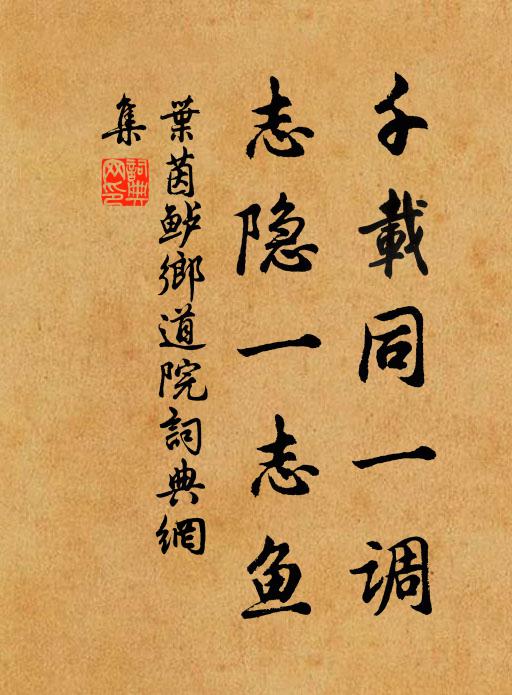 千載同一调
志隐一志鱼
葉茵鲈鄉道院詞典網
集
詞典
网印